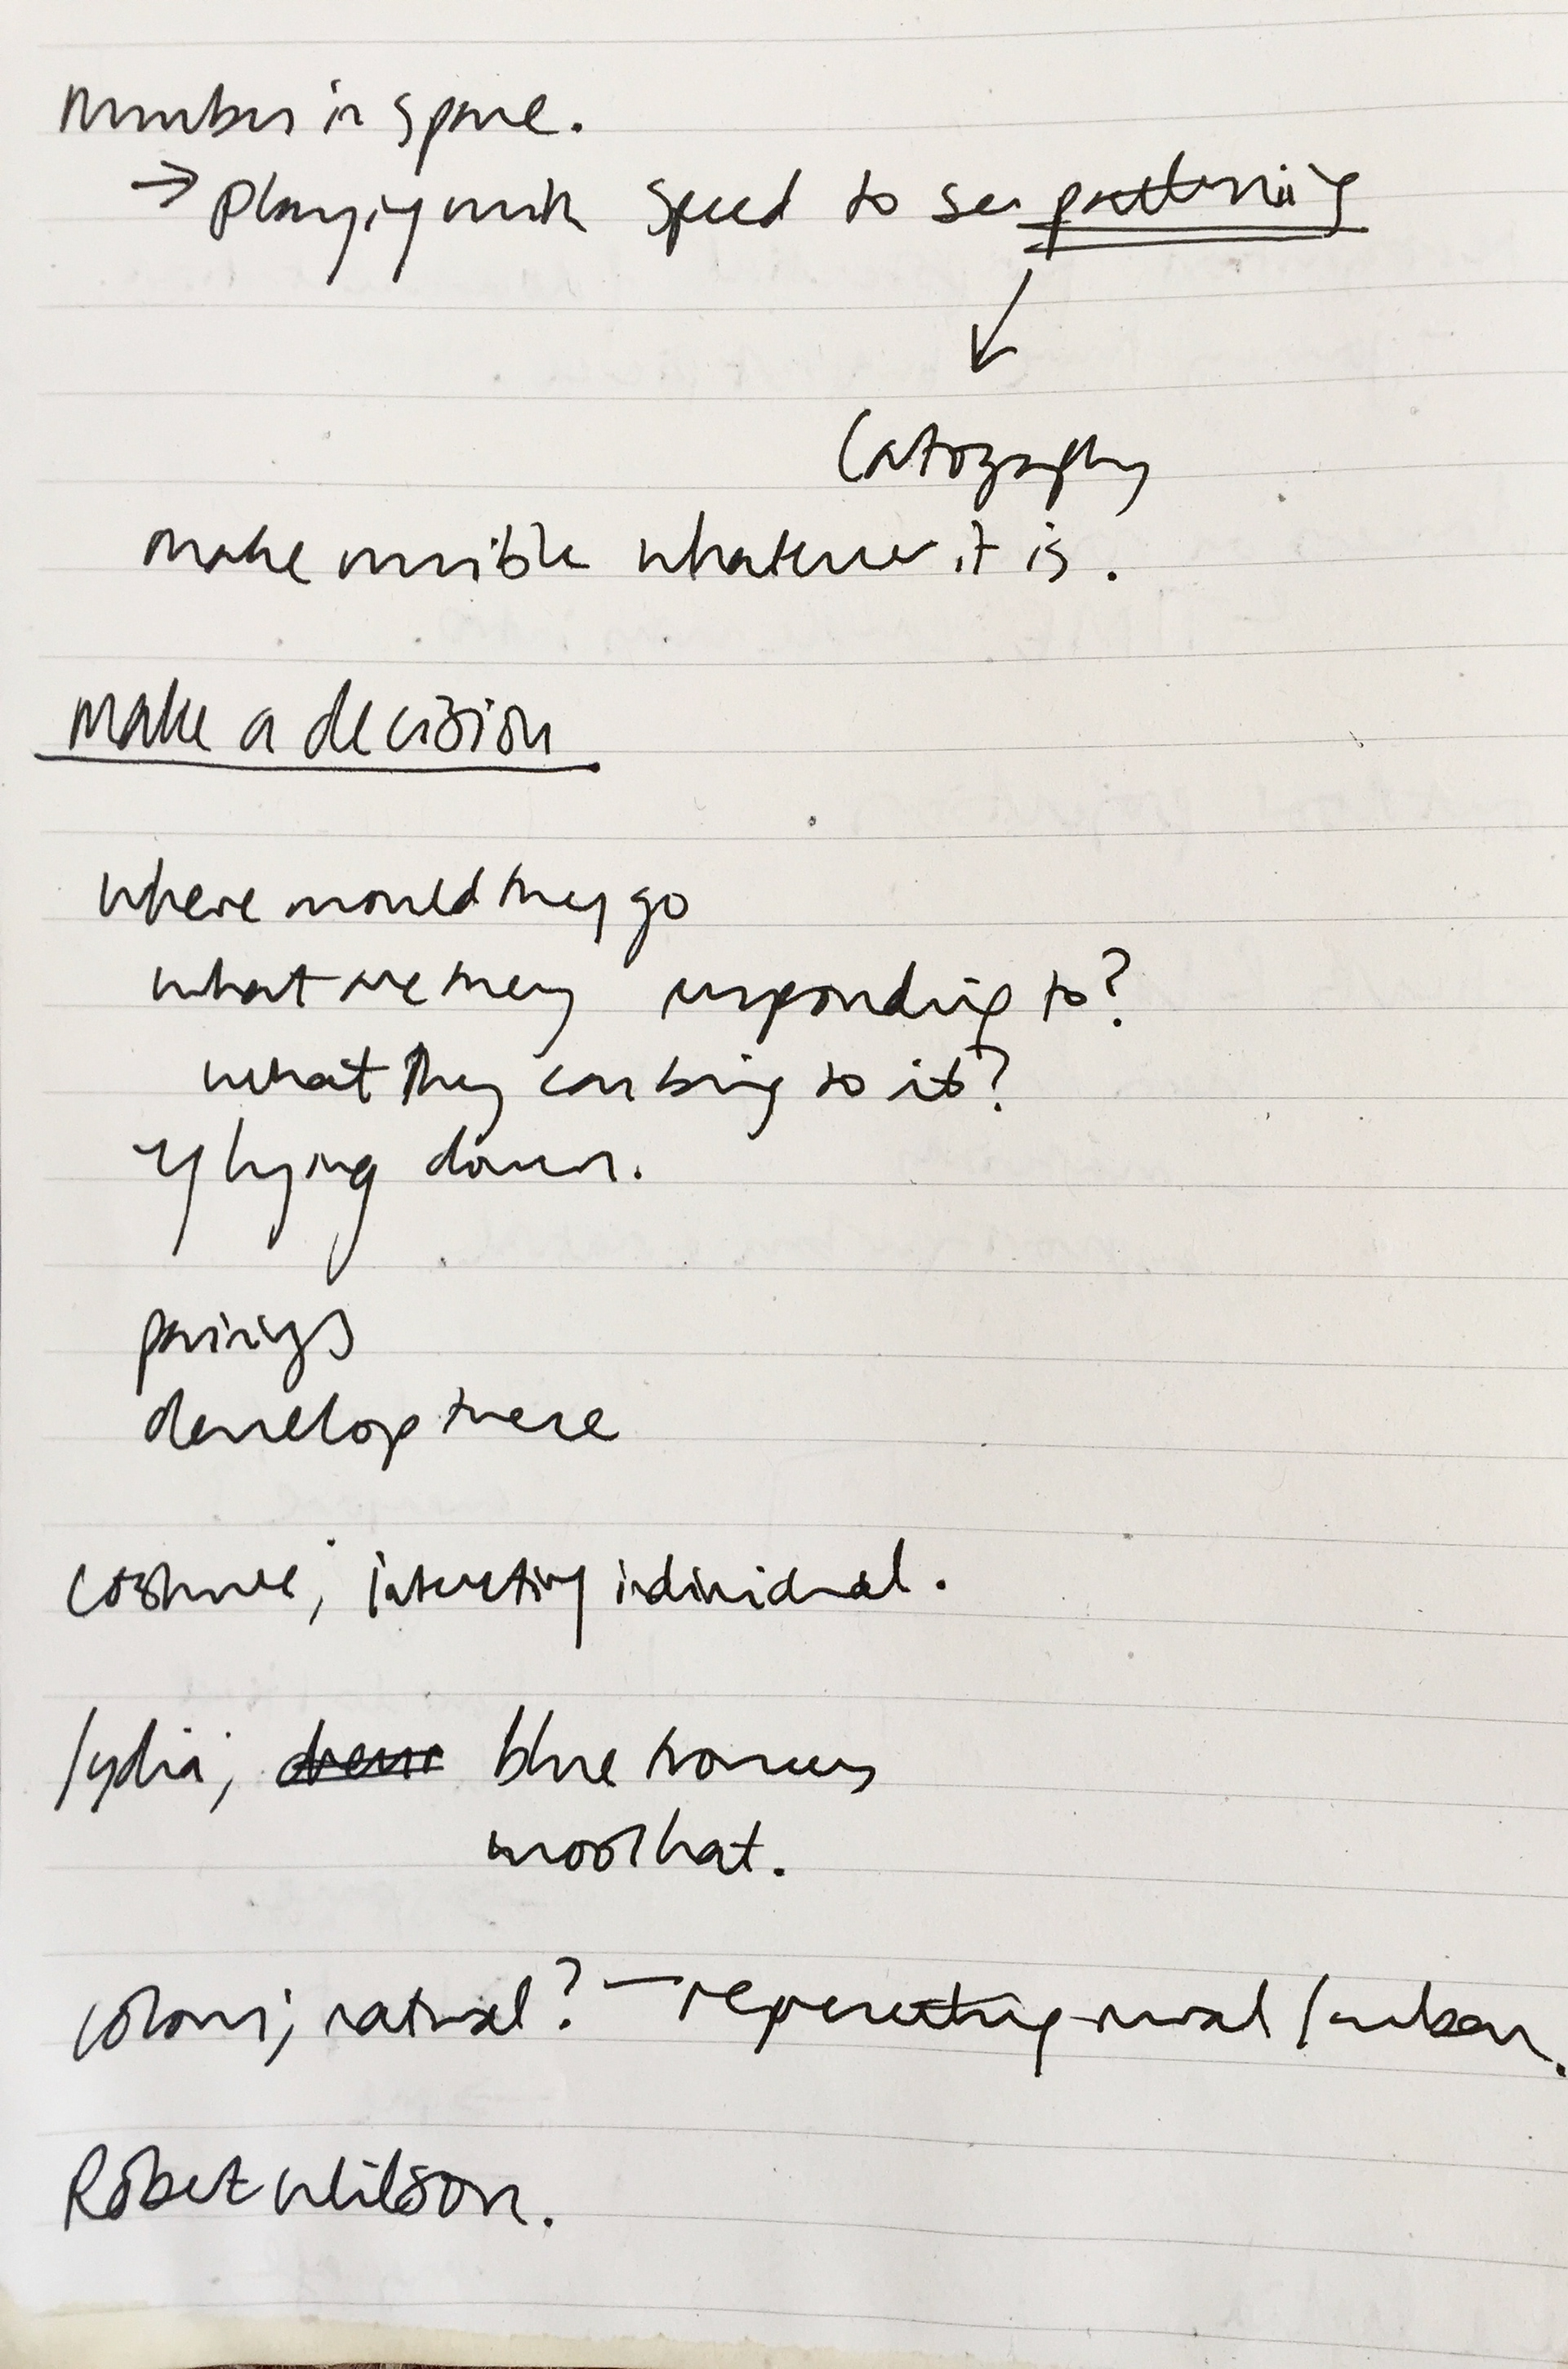 Number in space.
→ playing with speed to see patterning
↓
Catography
make visible whatever it is.
Make a decision
where would they go
what are they responding to?
what they can bring to it?
lying down.
pairings
develop these
costume; interesting individual.
lydia; blue trousers
wool hat.
colours; natural? – representing rural / urban.
Robert Wilson.